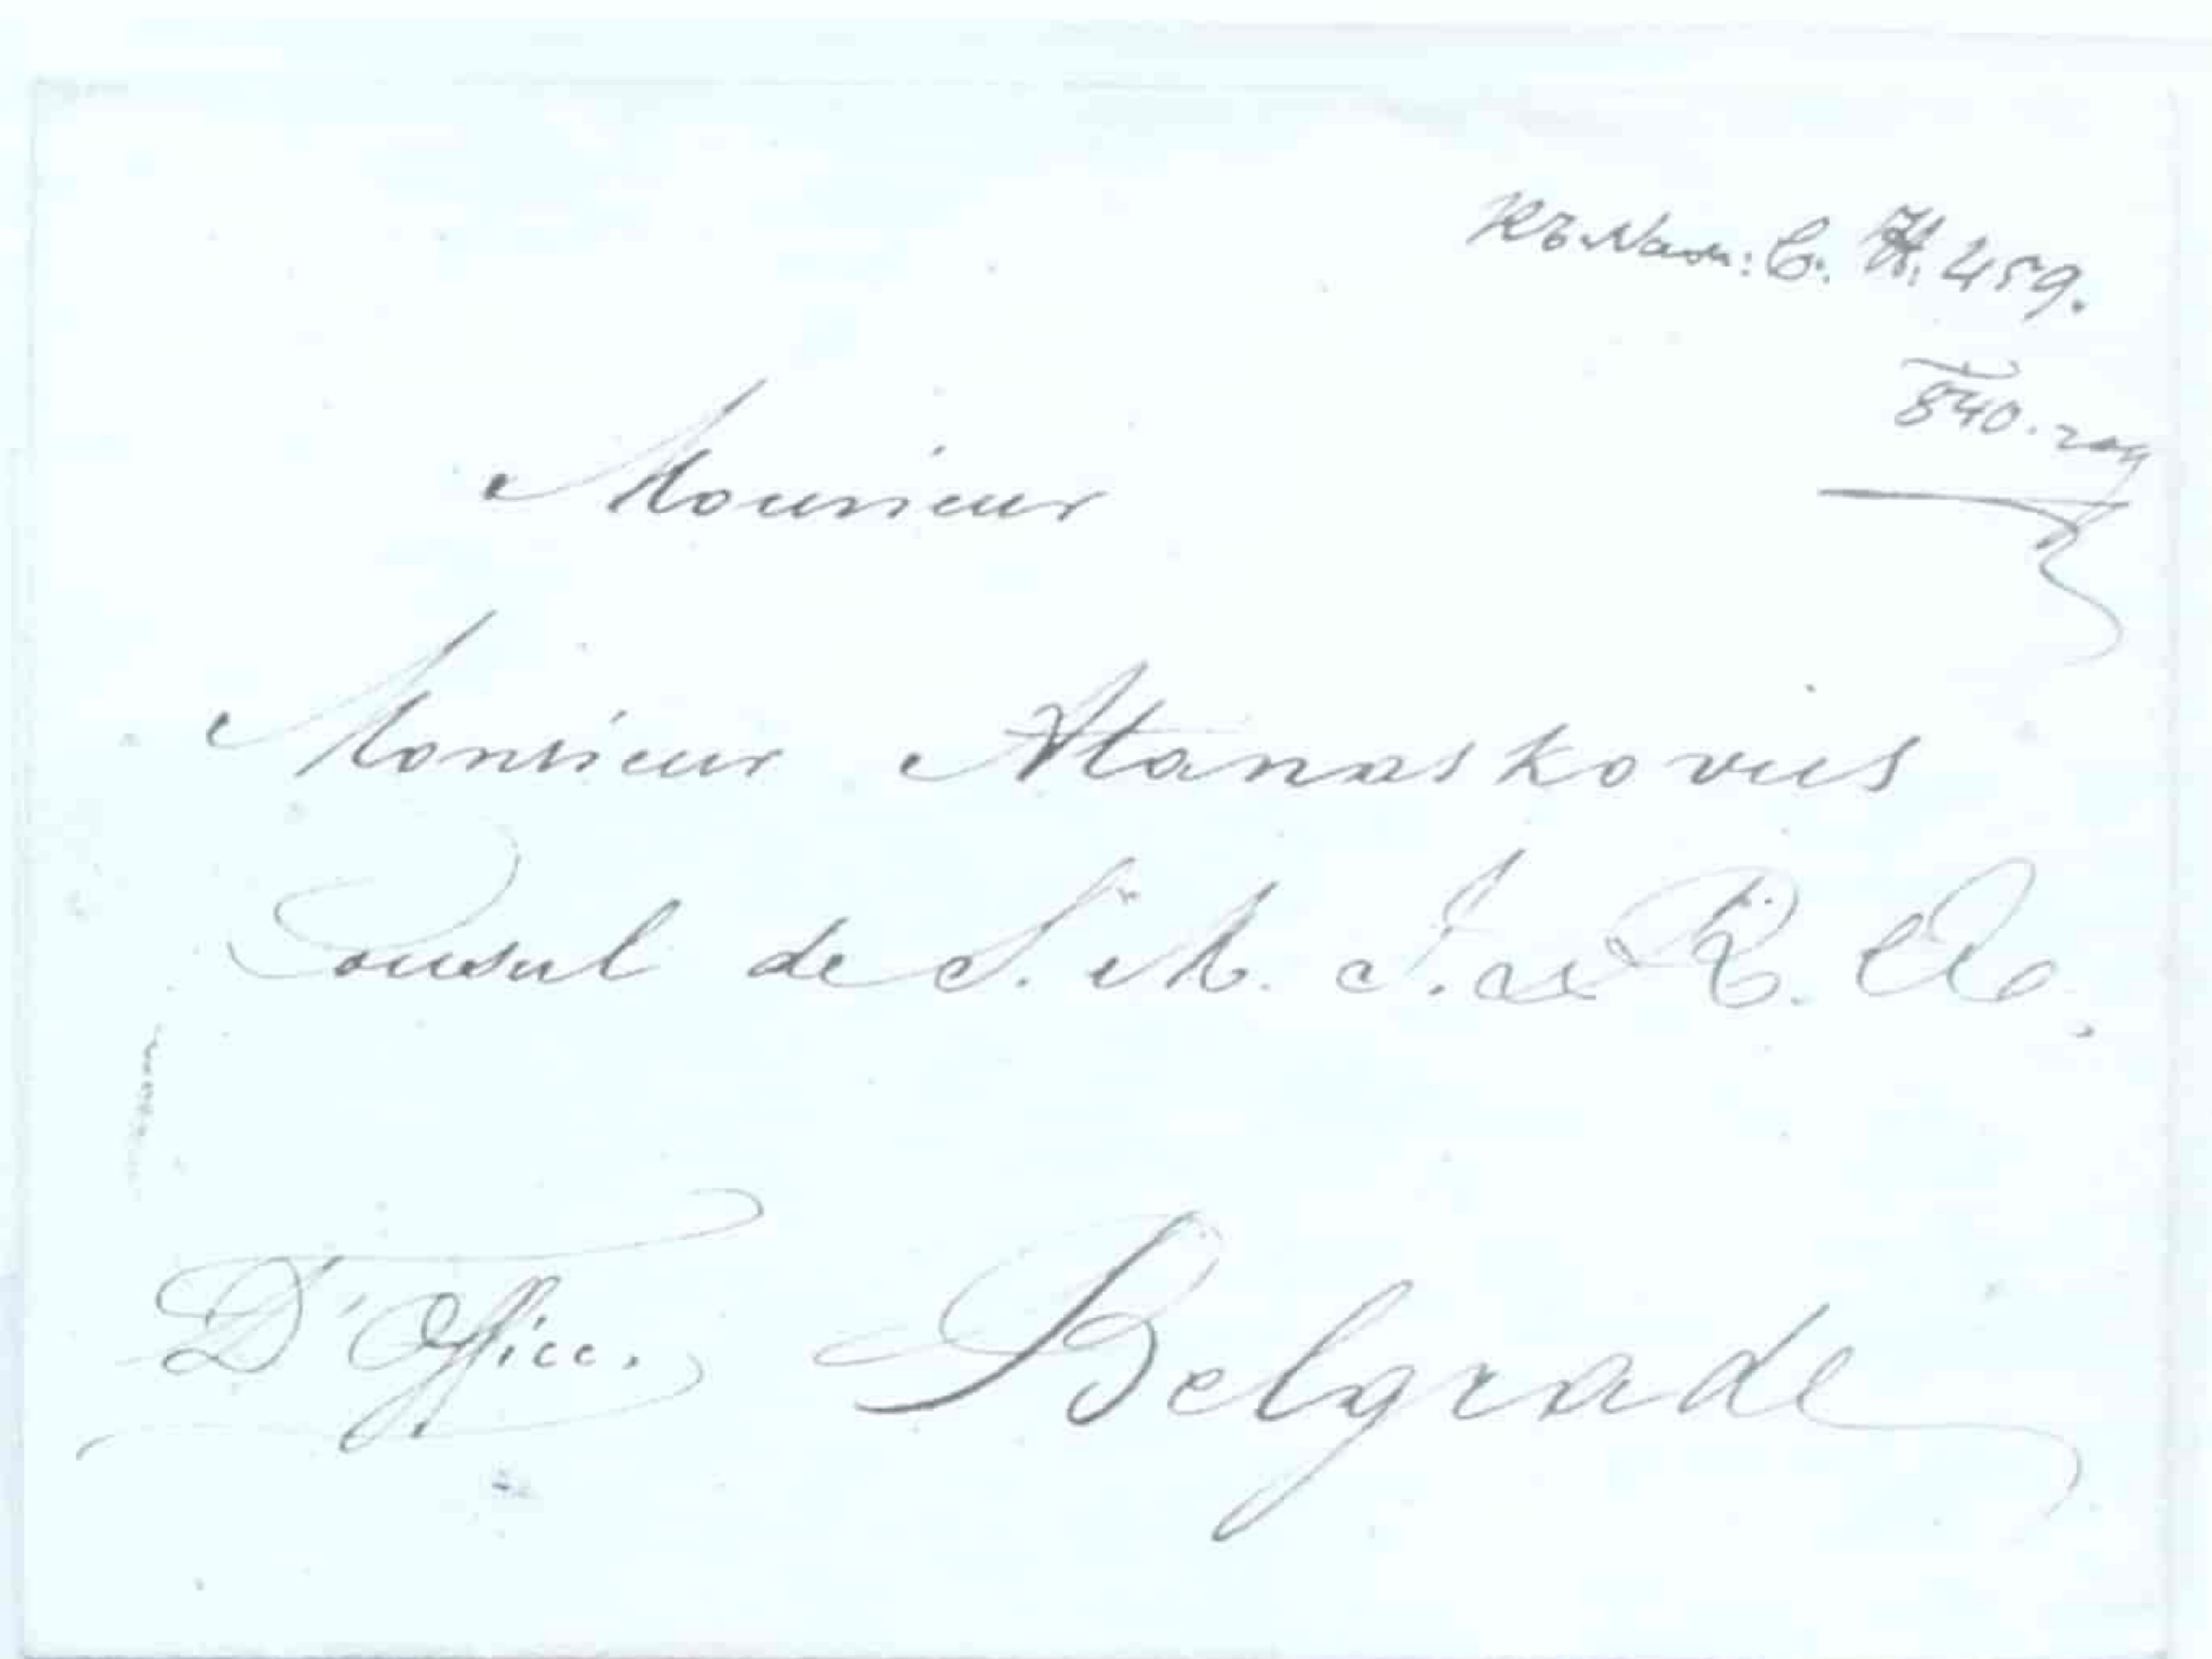 Къ Nаш: С. № 459.
840. год
Monsieur
Monsieur Atanaskovics
Consul de S. M. I. et R. A.
D'Office. Belgrade